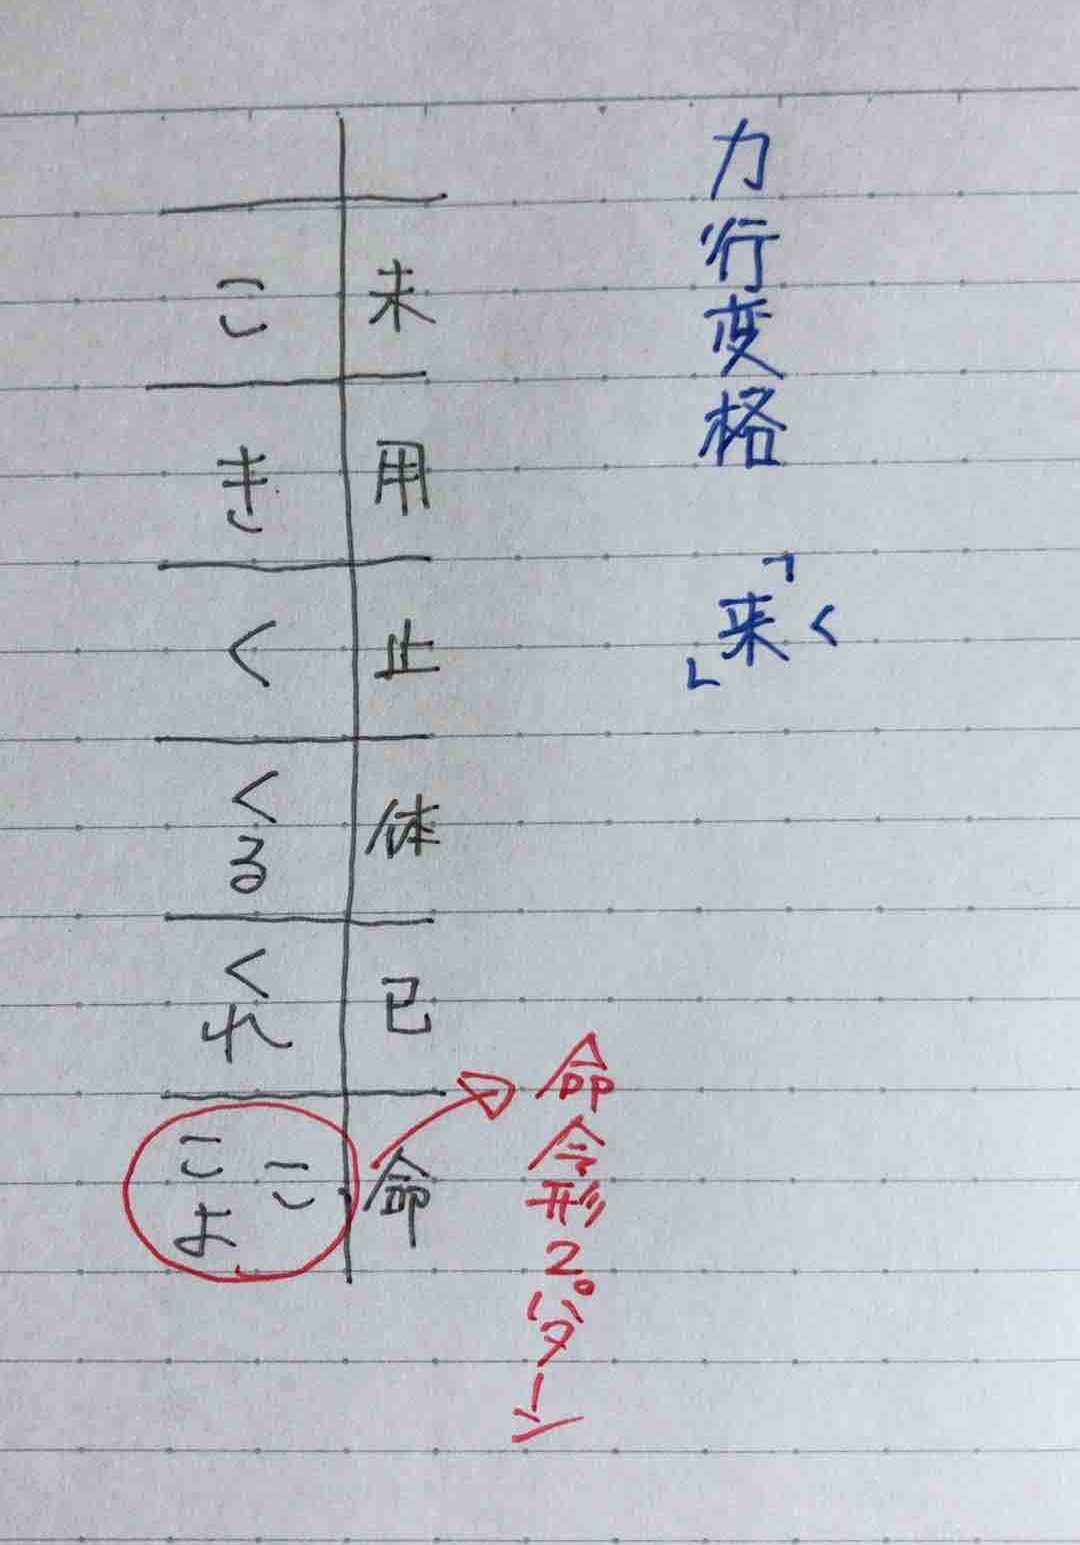 カ行変格 「来」
く
未 用 止 体 已 命
こ き く くる くれ こ
こよ
命令形2パターン